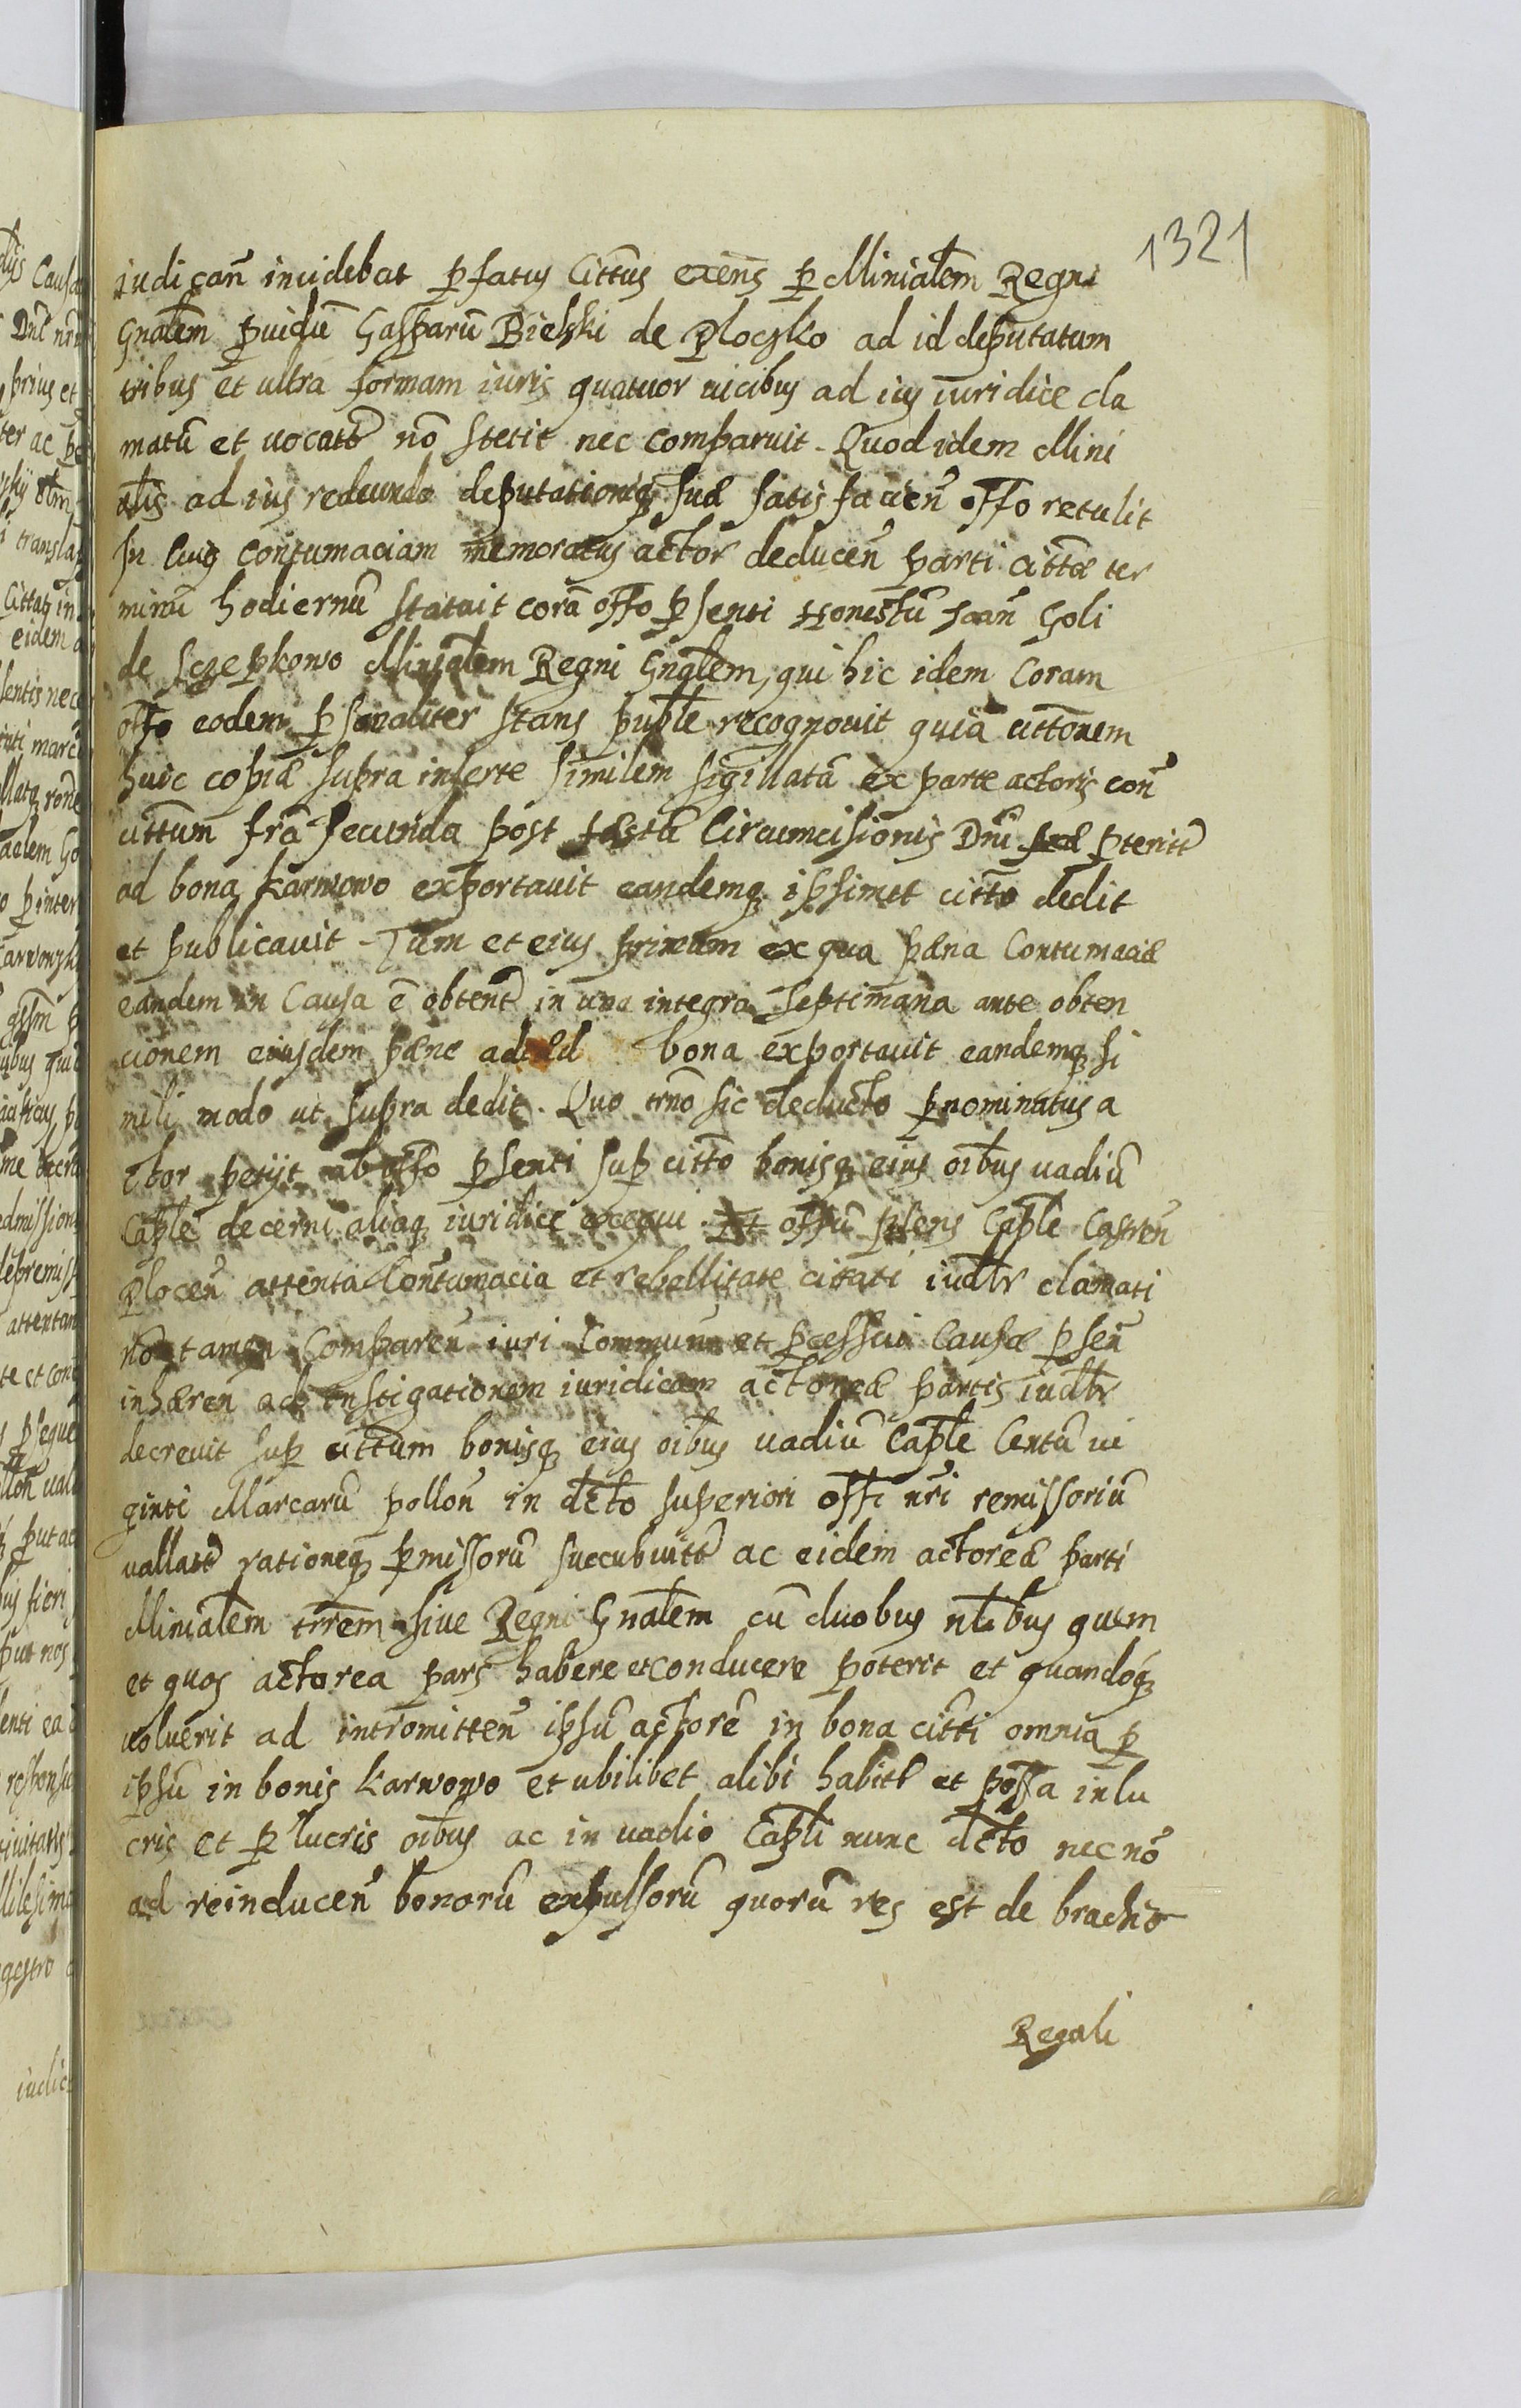 1321
iudican̄ incidebat p̱fatus Citt̄us exen̄s p̱ Minialem̄ Regni
Gnalem̄ p̱uidū Gasparū Bielski de Ploczko ad id deputatum
tribus et ultra formam iuris quatuor uicibus ad ius iuridice cla
matū et uocatū nō stetit nec comparuit. Quod idem Mini
alis ad ius redeundo deputationiq̨ suæ satisfacien̄ offo retulit
In cuius contumaciam memoratus actor deducen̄ parti cittæ ter
minū hodiernū statuit corā offo p̱senti Honestū Joan̄ Goli
de Sczepkowo Minialem̄ Regni Gnalem̄, qui hic idem Coram
offo eodem p̱sonaliter stans puble recognouit quia cittonem
huic copiæ supra inserte similem sigillatā ex parte actoris con̄
cittum fr̄a secunda post festū Circumcisionis Dn̄i p̱terit̄
ad bona Karwowo exportauit eandemq̨ ipsimet citto dedit
et publicauit. Tum et eius primum ex qua pæna Contumaciæ
eandem in Causa ē obtent̄ in una integra Septimana ante obten
cionem eiusdem pæne ad bona exportauit eandemq̨ si
mili modo ut supra dedit. Quo trn̄o sic deducto p̱nominatus a
ctor petijt ab offo p̱senti sup̱ citto bonisq̨ eius oibus uadiū
Caple decerni aliaq̨ iuridice exequi. Et offiū p̱sens Caple Castren̄
Plocen̄ attenta Contumacia et rebellitate cittati iudlr clamati
nō tamen Comparen̄ iuri Communi et p̱cessui Causæ p̱sen̄
inhæren̄ ad instigationem iuridicam actoreæ partis iudlr
decreuit sup̱ cittum bonisq̨ eius oibus uadiū Caple Centū ui
ginti Marcarū pollon̄ in dcto superiori offi nr̄i remissoriū
uallat̄ rationeq̨ p̱missorū succubuitt̄ ac eidem actoreæ parti
Minialem̄ trrem siue Regni Gnalem̄ cū duobus nlibus quem
et quos actorea pars habere et conducere poterit et quandoq̨
uoluerit ad intromitten̄ ipsū actorē in bona citti omnia p̱
ipsū in bonis Karwowo et ubilibet alibi habit̄ et possa in lu
cris et p̱ lucris oibus ac in uadio Capli nunc dcto nec nō
ad reinducen̄ bonorū expulsorū quorū res est de brachio
Regali